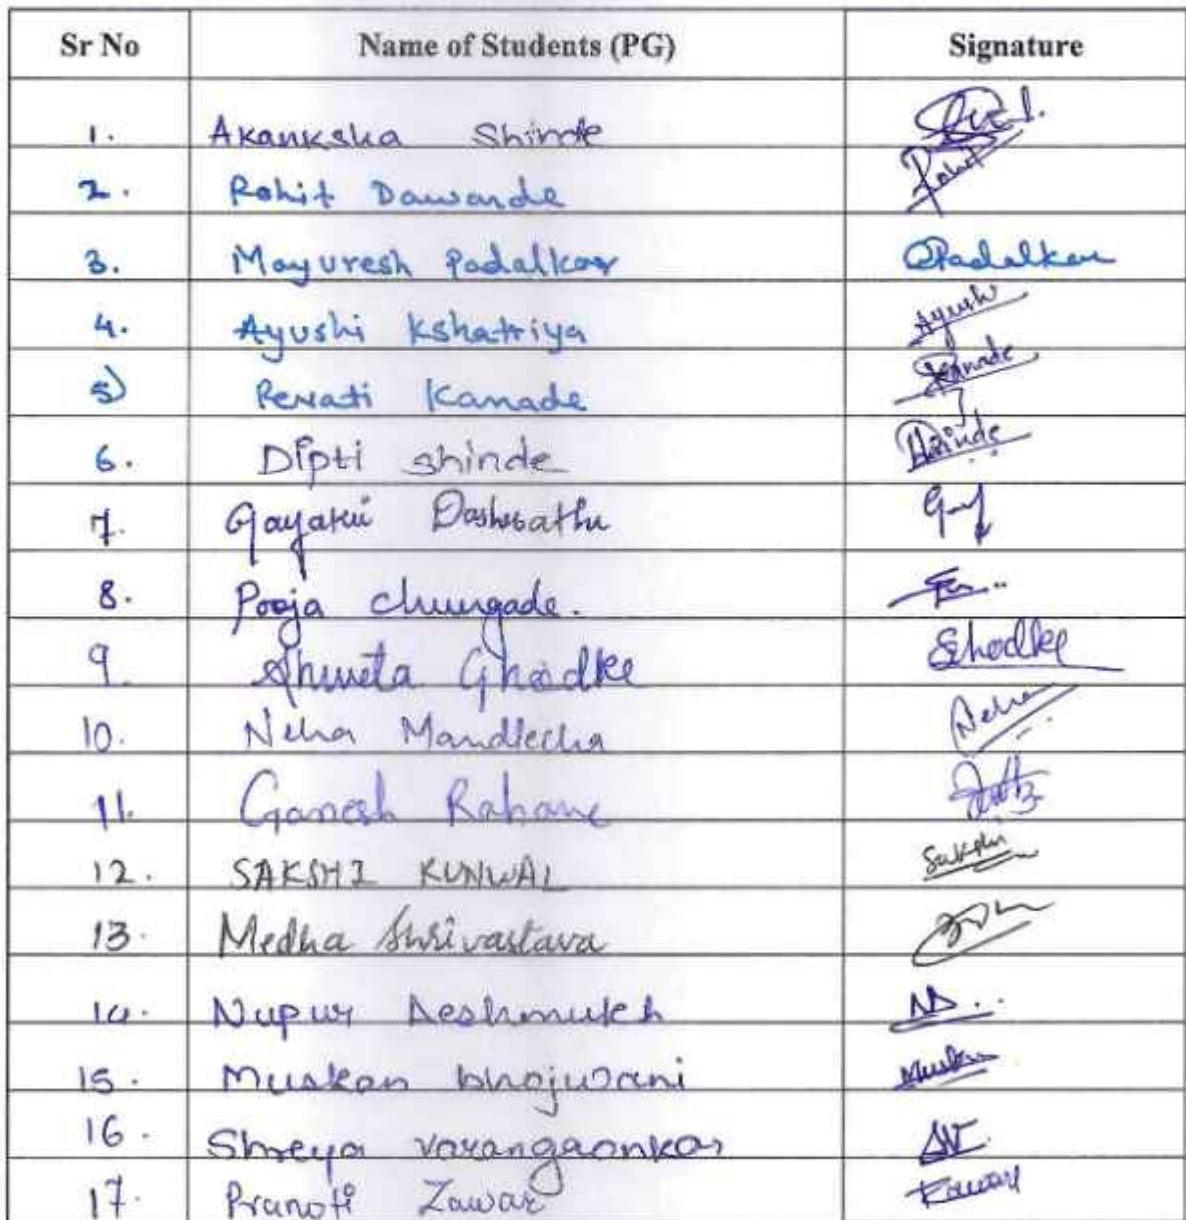 Sr No Name of Students (PG) Signature
1. Akanksha Shinde
2. Rohit Dawande Rohit
3. Mayuresh Padalkar Padalkar
4. Ayushi Kshatriya Ayushi
5) Revati Kanade Kanade
6. Dipti shinde Shinde
7. Gayatri
8. Pooja
9. Shweta Ghodke Ghodke
10. Neha Mandlecha Neha
11. Ganesh Rahane
12. SAKSHI KUNWAL Sakshi
13. Medha Shrivastava
14. Nupur Deshmukh ND..
15. Muskan bhojwani Muskan
16. Shreya varangaonkar SV
17. Pranoti Zawar Zawar